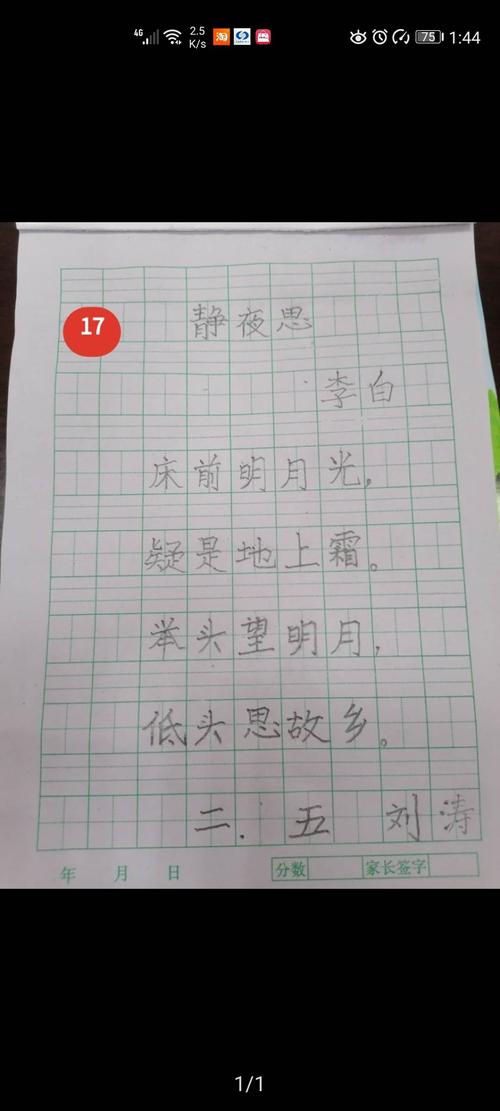 4G 2.5 K/s 淘 75 1:44
17
静夜思
李白
床前明月光，
疑是地上霜。
举头望明月，
低头思故乡。
二．五 刘涛
年 月 日 分数 家长签字
1/1